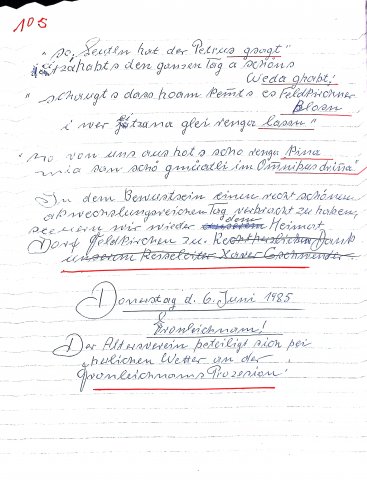 105
"so, Leutln hat der Petrus gsagt"
etzahabts den ganzen Tag a schöns
Weda ghabt!
"schaugts dass hoam kemts es Feldkirchner
Blosn
i wer etzana glei renga lassn"
"wo von uns aus hots scho renga kina
mia san scho gmüatli im Omnibus drina"
In dem Bewustsein einen recht schönen
abwechslungsreichen Tag verbracht zu haben,
steuern wir wieder dem Heimat
Dorf Feldkirchen zu. Dank
unserem Reiseleiter Xaver Gschwendtner
Donerstag d. 6. Juni 1985
Fronleichnam!
Der Altersverein beteiligt sich bei
herlichen Wetter an der
Fronleichnams Prozesion!